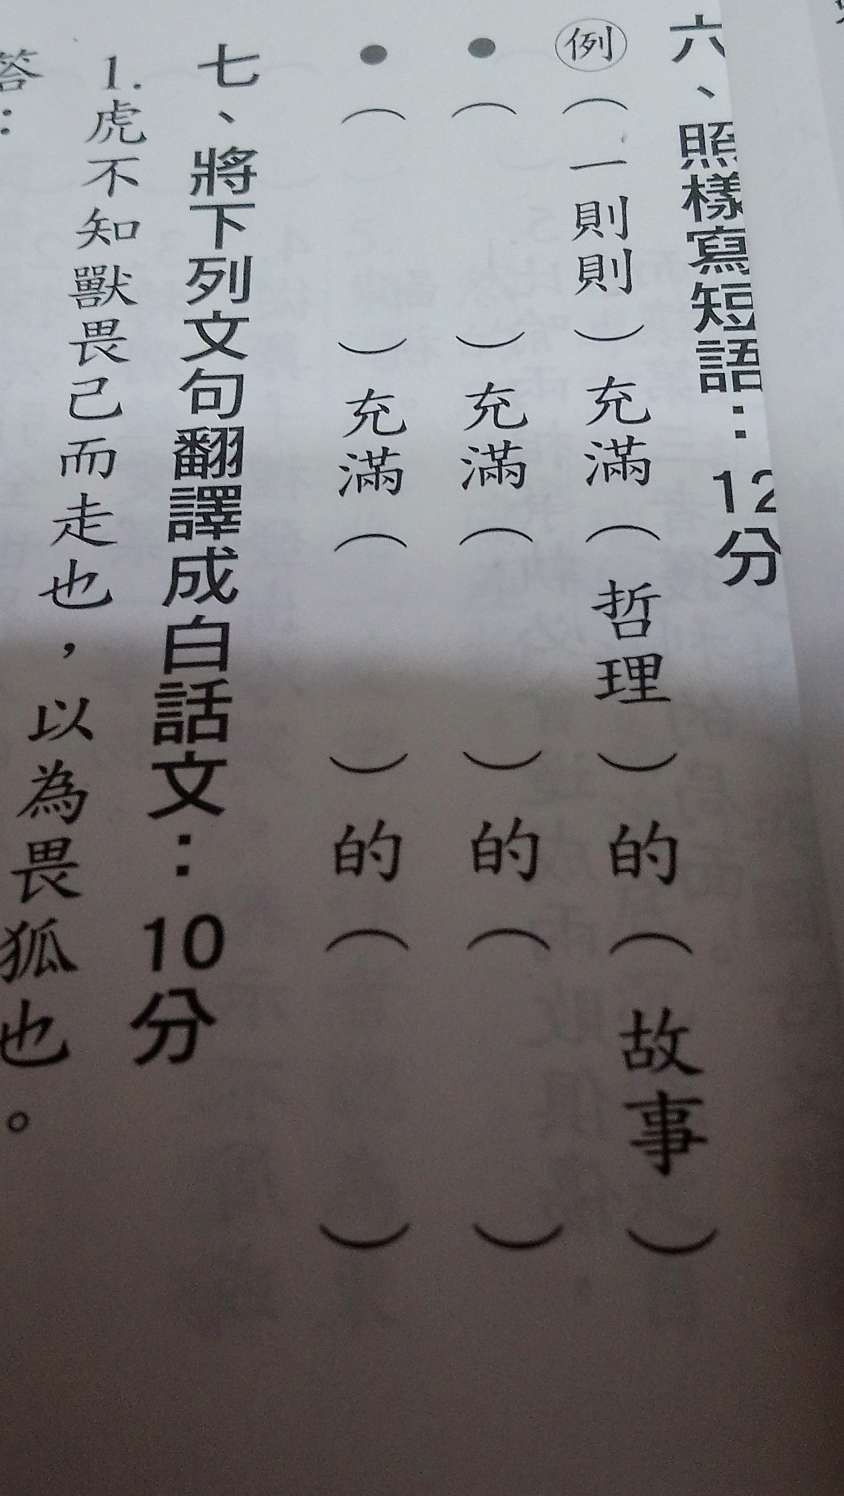 六、照樣寫短語：12分
例（一則則）充滿（哲理）的（故事）
●（　　）充滿（　　）的（　　）
●（　　）充滿（　　）的（　　）
七、將下列文句翻譯成白話文：10分
1.虎不知獸畏己而走也，以為畏狐也。
答：